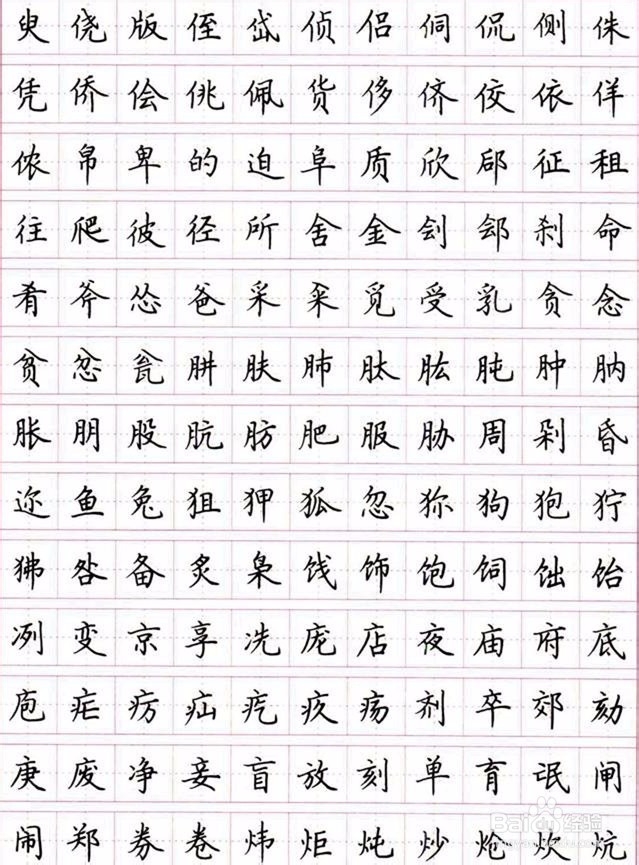 臾侥版侄岱侦侣侗侃侧侏
凭侨侩佻佩货侈侪佼依佯
侬帛卑的迫阜质欣郈征
往爬彼径所舍金刽郐刹命
肴斧怂爸采觅受乳贪念
贫忿瓮肼肤肺肽肱肫肿肭
胀朋股肮肪肥服胁周剁昏
迩鱼兔狙狎狐忽狝狗狍狞
狒咎备炙枭饯饰饱饲饳饴
冽变京享冼庞店夜庙府底
庖疟疠疝疙疚疡剂卒郊劾
庚废净妾盲放刻单育氓闸
闹郑券卷炜炬炖炒炝炊炕
Baidu经验